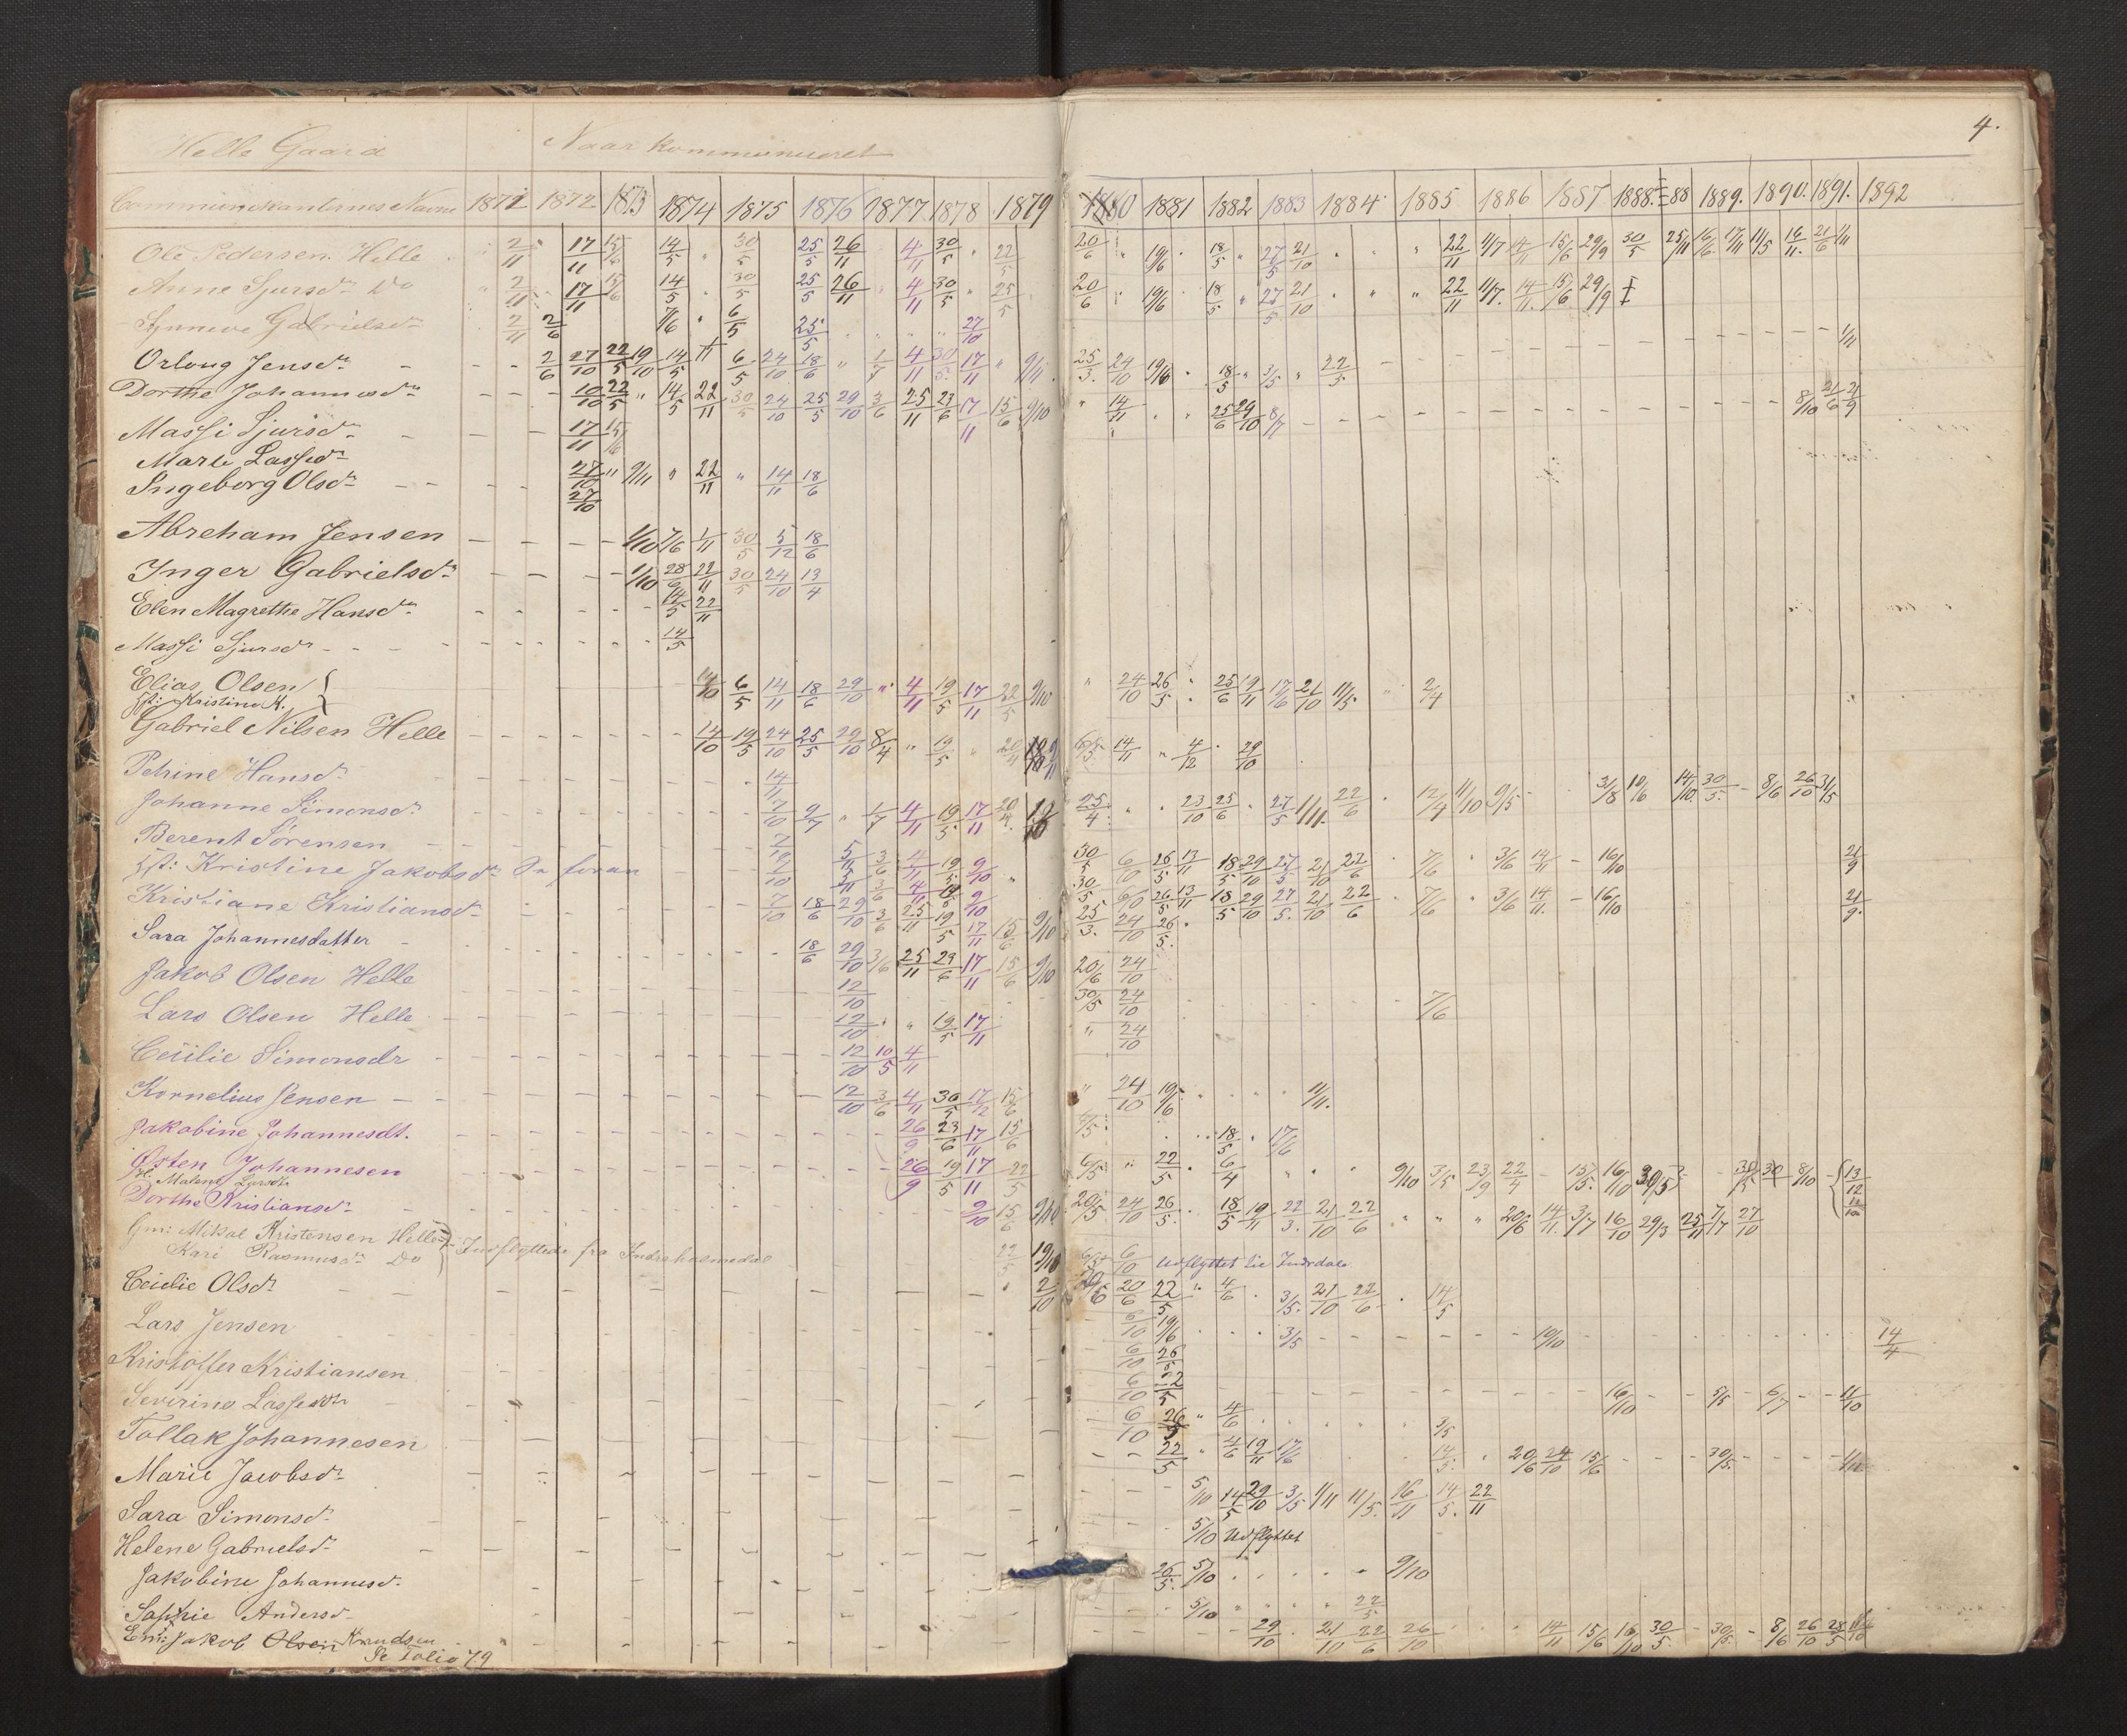 4.
Helle Gaard Naar kommuniceret
Communikanternes Navne 1871 1872 1873 1874 1875 1876 1877 1878 1879 1880 1881 1882 1883 1884 1885 1886 1887 1888 88 1889. 1890. 1891. 1892
Ole Pedersen Helle 2/11 17/11 15/6 14/5 30/5 25/5 26/11 4/11 30/5 22/5 20/6 19/6 18/5 27/5 21/10 22/11 11/7 15/6 29/9 30/5 25/11 16/6 17/11 11/5 16/11 21/6 1/11
Anne Sjursdr Do 2/11 17/11 15/6 14/5 30/5 25/5 26/11 4/11 30/5 25/5 20/6 19/6 18/5 27/5 21/10 22/11 11/7. 14/11. 15/6 29/9
Synneve Gabrielsdr 2/11 2/6 7/6 6/5 25/5 27/10 1/11
Orloug Jensdr 2/6 27/10 22/5 19/10 14/5 6/5 24/10 18/6 1/7 4/11 30/5 17/11 9/11. 25/3. 24/10 19/6 18/5 3/5 22/5
Dorthe Johannesdr 10/10 22/5 14/5 22/11 30/5 24/10 25/5 29/10 3/6 25/11 23/6 17/11 15/6 9/10 14/11 25/6 29/10 8/7 8/10 21/6 21/9
Massi Sjursdr 17/11 15/6
Marte Lassedr 27/10 9/11 22/11 14/11 18/6
Ingeborg Olsdr 27/10
Abreham Jensen 1/10 7/6 1/11 30/5 5/12 18/6
Inger Gabrielsdr 1/10 28/6 22/11 30/5 24/10 13/4
Elen Magrethe Hansdr 14/5 22/11
Massi Sjursdr 14/5
Elias Olsen 14/10 6/5 14/11 18/6 29/10 4/11 19/5 17/11 22/5 9/10 24/10 26/5 25/6 19/11 17/6 21/10 11/5 2/4
Hst: Kristine K.
Gabriel Nilsen Helle 14/10 19/5 24/10 25/5 29/10 8/4 19/5 14/11 4/12 29/10
Petrine Hansdr 14/11
Johanne Simonsdr 7/10 9/7 1/7 4/11 19/5 17/11 25/4 23/10 25/6 27/5 1/11. 22/6 12/4 11/10 9/5 3/8 10/6 14/10 30/5. 8/6 26/10 31/5
Berent Sørensen 7/10 5/11 3/6 4/11 19/5 9/10 30/5 6/10 26/5 13/11 18/5 29/10 27/5 21/10 22/6 7/6 3/6 14/11 16/10 21/9
Hst: Kristine Jakobsdr Se foran 7/10 5/11 3/6 4/11 19/5 9/10 30/5 6/10 26/5 13/11 18/5 29/10 27/5. 21/10 22/6 7/6 3/6 14/11. 16/10 21/9.
Kristiane Kristiansdr 7/10 18/6 29/10 3/6 25/11 19/5 17/11 15/6 9/10 25/3. 24/10 26/5.
Sara Johannesdatter 18/6 29/10 3/6 25/11 23/6 17/11 15/6 9/10 20/6 24/10
Jakob Olsen Helle 12/10 30/5 24/10 7/6
Lars Olsen Helle 12/10 19/5 17/11 24/10
Cecilie Simonsdr 12/10 10/5 4/11
Kornelius Jensen 12/10 3/6 4/11 30/5 17/12 15/6 24/10 19/6 11/11.
Jakobine Johannesdt. 26/9 23/6 17/11 15/6 6/5 18/5 17/6
Østen Johannesen 26/9 19/5 17/11 22/5 6/5 22/5 6/4 9/10 3/5 23/9 22/4 15/5. 16/10 30/5 30/5 8/10 13/12
H. Malene Larsdr
Dorthe Kristiansdr 9/10 15/6 9/10 20/5 24/10 26/5. 18/5 19/11 22/3. 21/10 22/6 20/6 14/11. 3/7 16/10 29/3 25/11 7/17 27/10
Gm: Mikal Kristensen Helle } Indflyttede fra Indreholmedal 22/5 19/10 6/5 6/10 Udflyttet til Indrdale
Kari Rasmusdr Do
Cecilie Olsdr 2/10 20/6 20/6 22/5 4/6 3/5. 21/10 22/6 14/5
Lars Jensen 6/10 19/6 3/5 10/10 14/4
Kristoffer Kristiansen 6/10 26/5
Severine Lassedtr 6/10 22/5 16/10 5/5 6/7 4/10
Tollak Johannesen 6/10 26/5 4/6 3/5
Marie Jacobsdr 22/5 4/6 19/11 17/6 14/5. 20/6 24/10 15/6 30/5.
Sara Simonsdr 5/10 14/5 29/10 3/5 1/11 11/5. 16/11 14/5. 22/11
Helene Gabrielsdr 5/10 Udflyttet
Jakobine Johannesdr 26/5. 5/10 9/10
Sophie Andersdr 5/10 22/5
Em: Jakob Olsen Knudsen 29/10 21/10 22/6 26/10 14/11 15/6 16/10 30/5 30/5 8/6 26/10 28/5
Se Folio 79